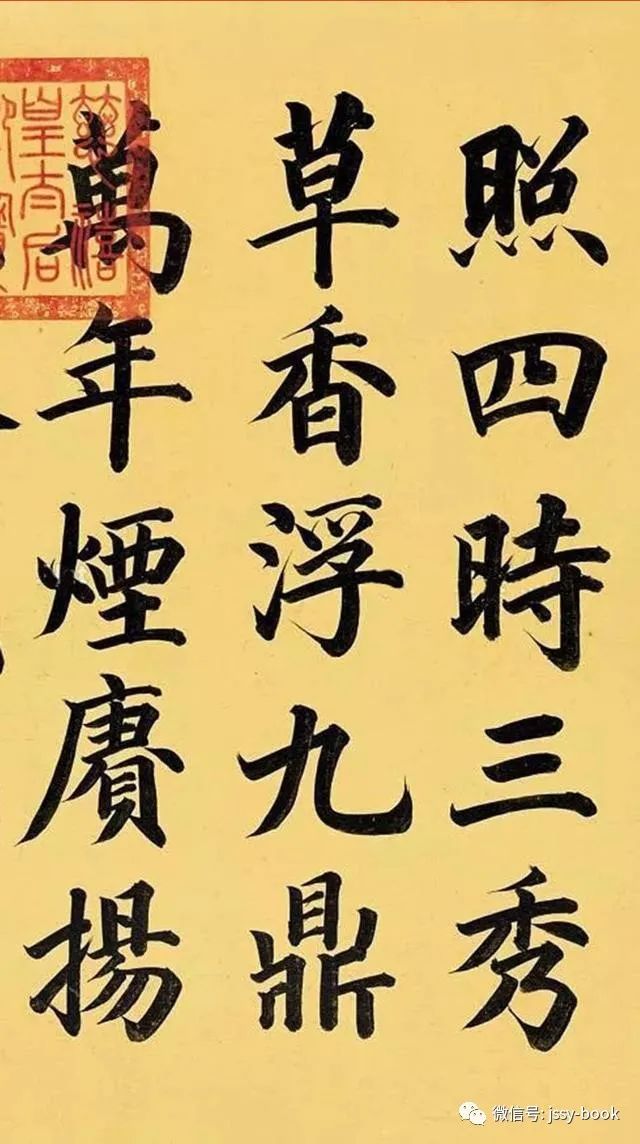 照四時三秀
草香浮九鼎
萬年煙賡揚
慈禧
皇太后
微信号: jssy-book